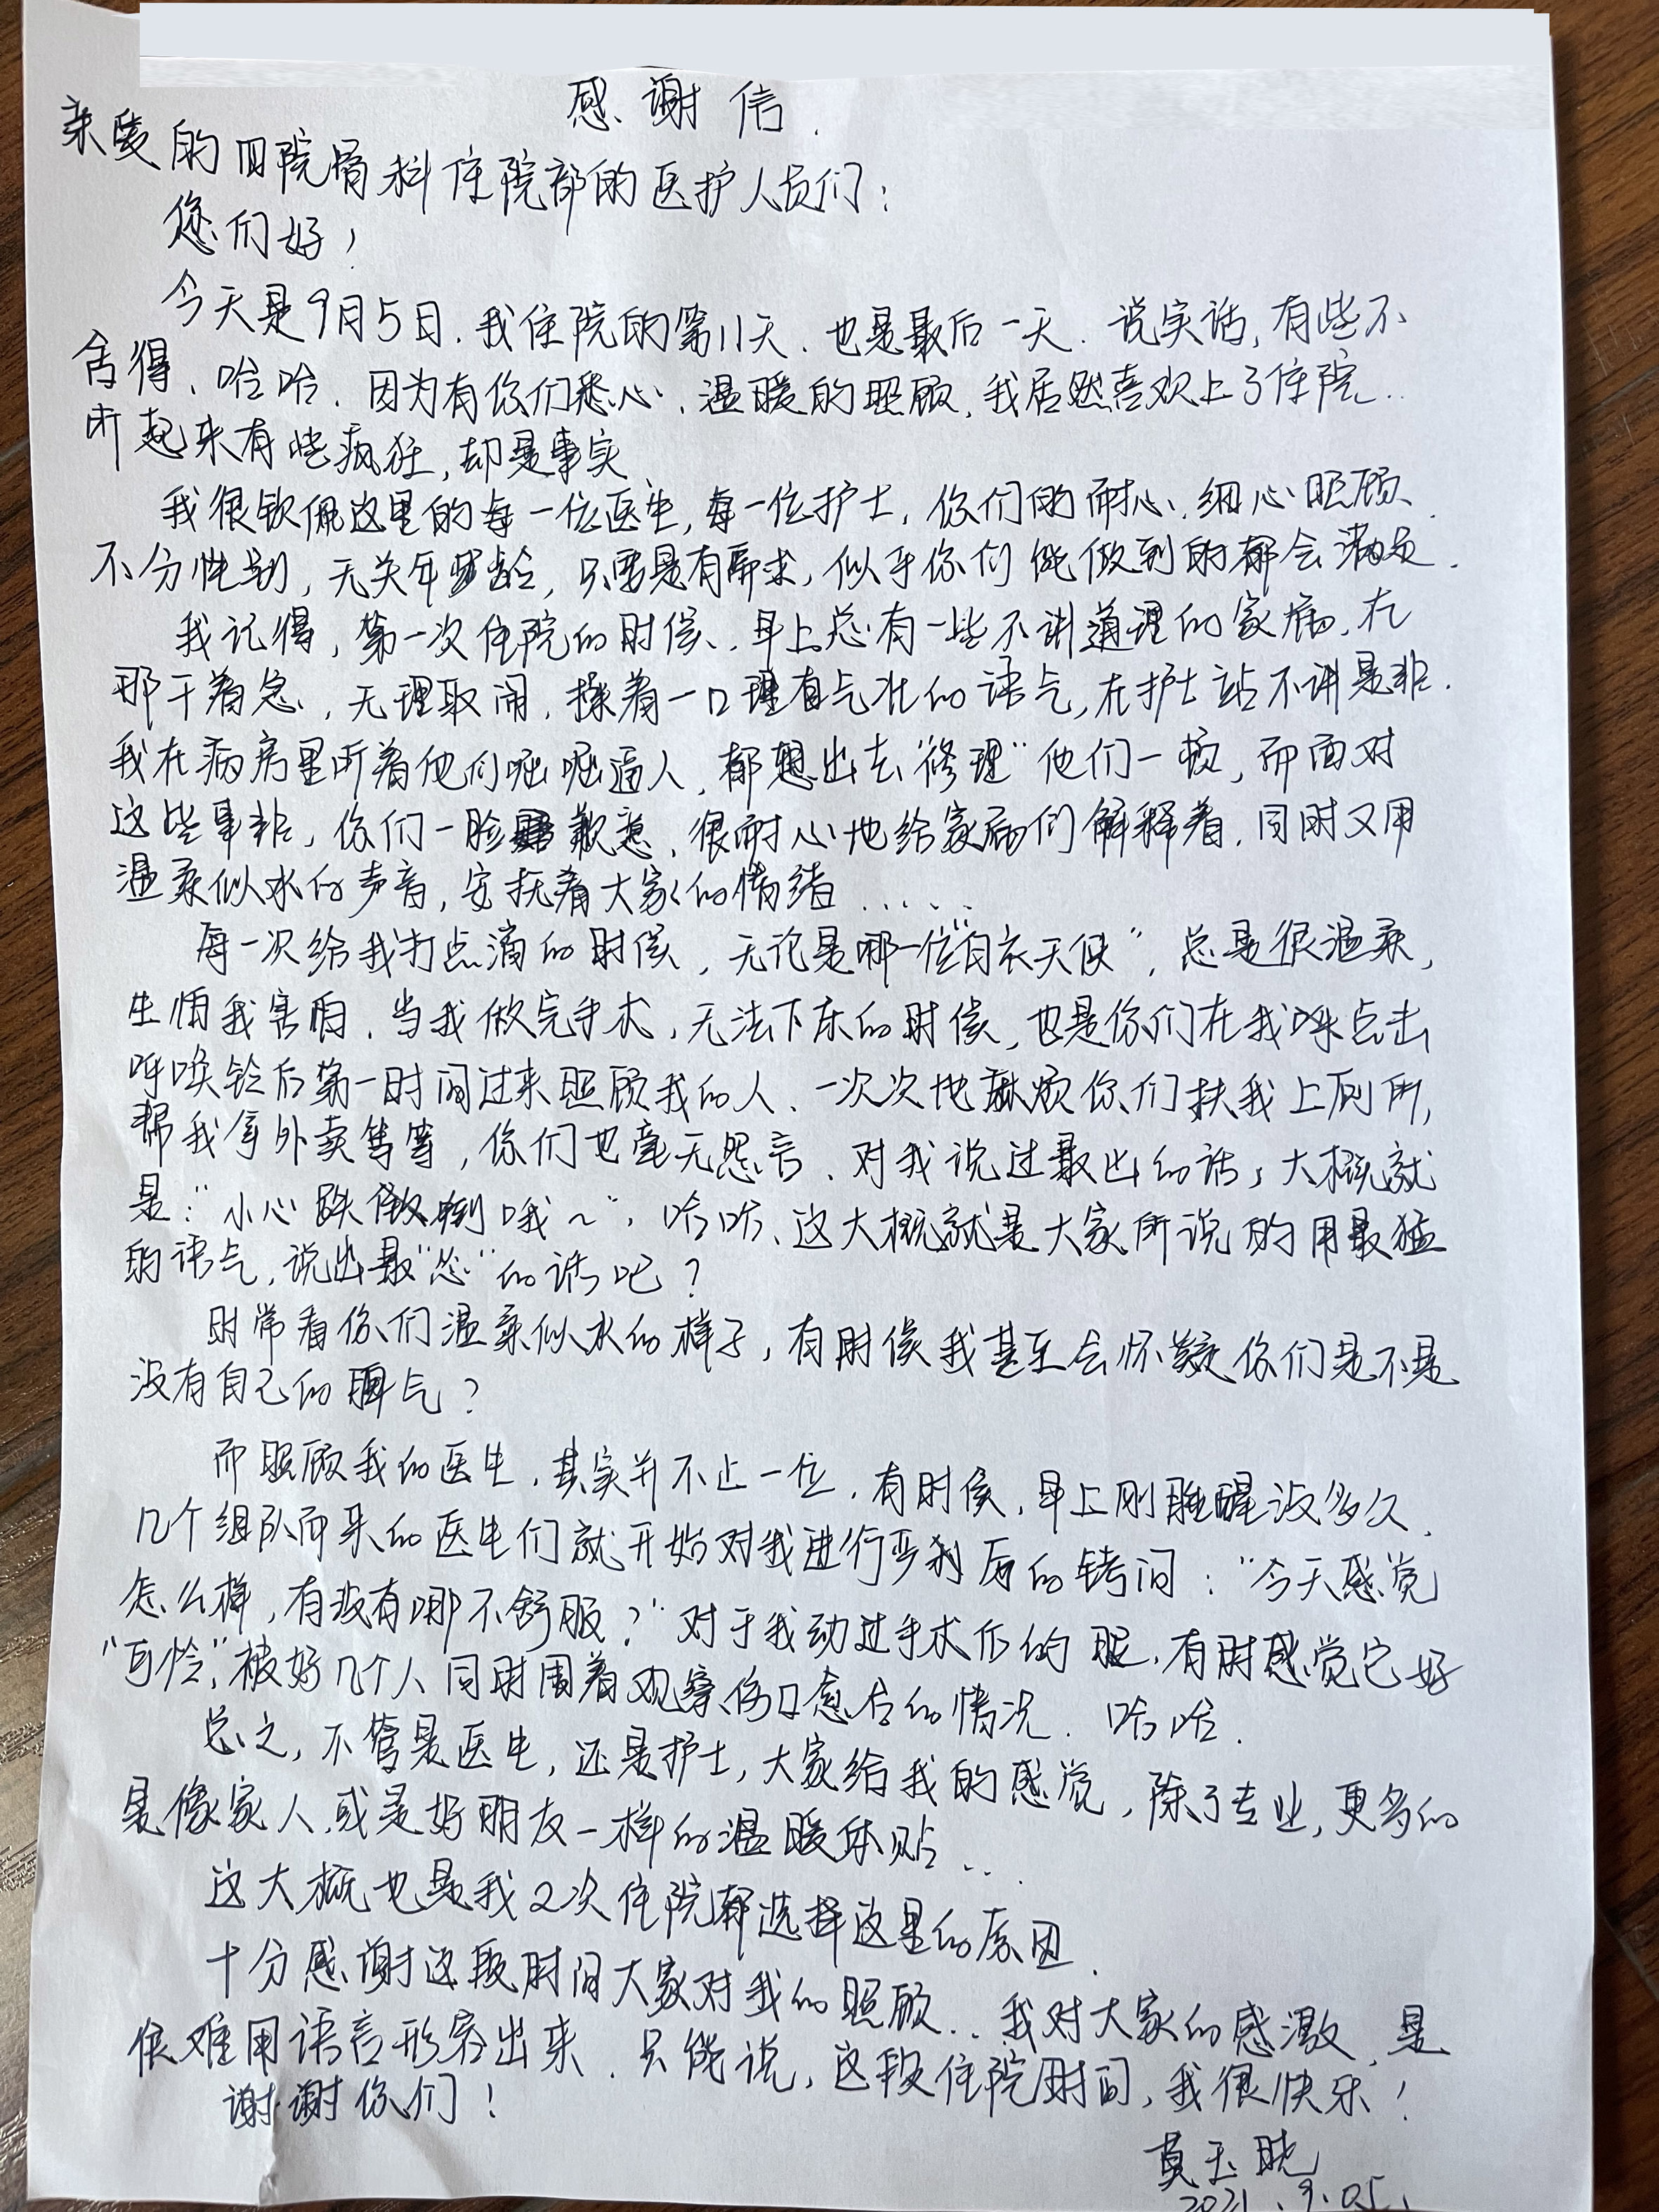 感谢信.
亲爱的四院骨科住院部的医护人员们：
您们好！
今天是9月5日.我住院的第11天.也是最后一天.说实话,有些不
舍得、哈哈.因为有你们悉心、温暖的照顾,我居然喜欢上了住院..
听起来有些疯狂,却是事实
我很钦佩这里的每一位医生,每一位护士,你们的耐心.细心照顾、
不分性别,无关年龄,只要是有需求,似乎你们能做到的都会满足.
我记得,第一次住院的时候、早上总有一些不讲道理的家病,在
那干着急,无理取闹,操着一口理直气壮的语气,在护士站不讲是非.
我在病房里听着他们咄咄逼人,都想出去“修理”他们一顿,而面对
这些事非,你们一脸歉意,很耐心地给家病们解释着,同时又用
温柔似水的声音,安抚着大家的情绪.....
每一次给我打点滴的时候,无论是哪一位“白衣天使”,总是很温柔,
生怕我害怕.当我做完手术,无法下床的时候,也是你们在我点击
呼唤铃后第一时间过来照顾我的人、一次次地麻烦你们扶我上厕所,
帮我拿外卖等等,你们也毫无怨言、对我说过最凶的话,大概就
是:“小心跌倒哦~”,哈哈、这大概就是大家所说的用最猛
的语气,说出最“怂”的话吧?
时常看你们温柔似水的样子,有时候我甚至会怀疑你们是不是
没有自己的脾气?
而照顾我的医生,其实并不止一位,有时候,早上刚睡醒没多久、
几个组队而来的医生们就开始对我进行严厉的拷问:“今天感觉
怎么样,有没有哪不舒服?”对于我动过手术后的腿,有时感觉它好
“可怜”,被好几个人同时围着观察伤口愈合的情况.哈哈.
总之,不管是医生,还是护士,大家给我的感觉,除了专业,更多的
是像家人,或是好朋友一样的温暖体贴...
这大概也是我2次住院都选择这里的原因.
十分感谢这段时间大家对我的照顾..我对大家的感激,是
很难用语言形容出来.只能说,这段住院时间,我很快乐!
谢谢你们!
莫玉晓
2021.9.05.